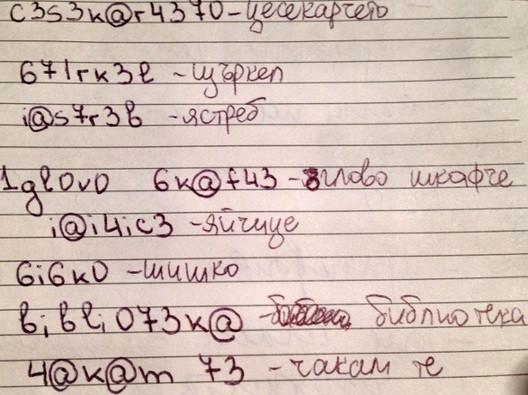 c3s3k@r4370-цесекарчето
671rk3l - щъркел
i@s7r3b -ястреб
1gl0v0 6k@f43 - ъглово шкафче
i@i4ic3 -яйчице
6i6k0 -шишко
bibli073k@ - библиотека
4@k@m 73 - чакам те